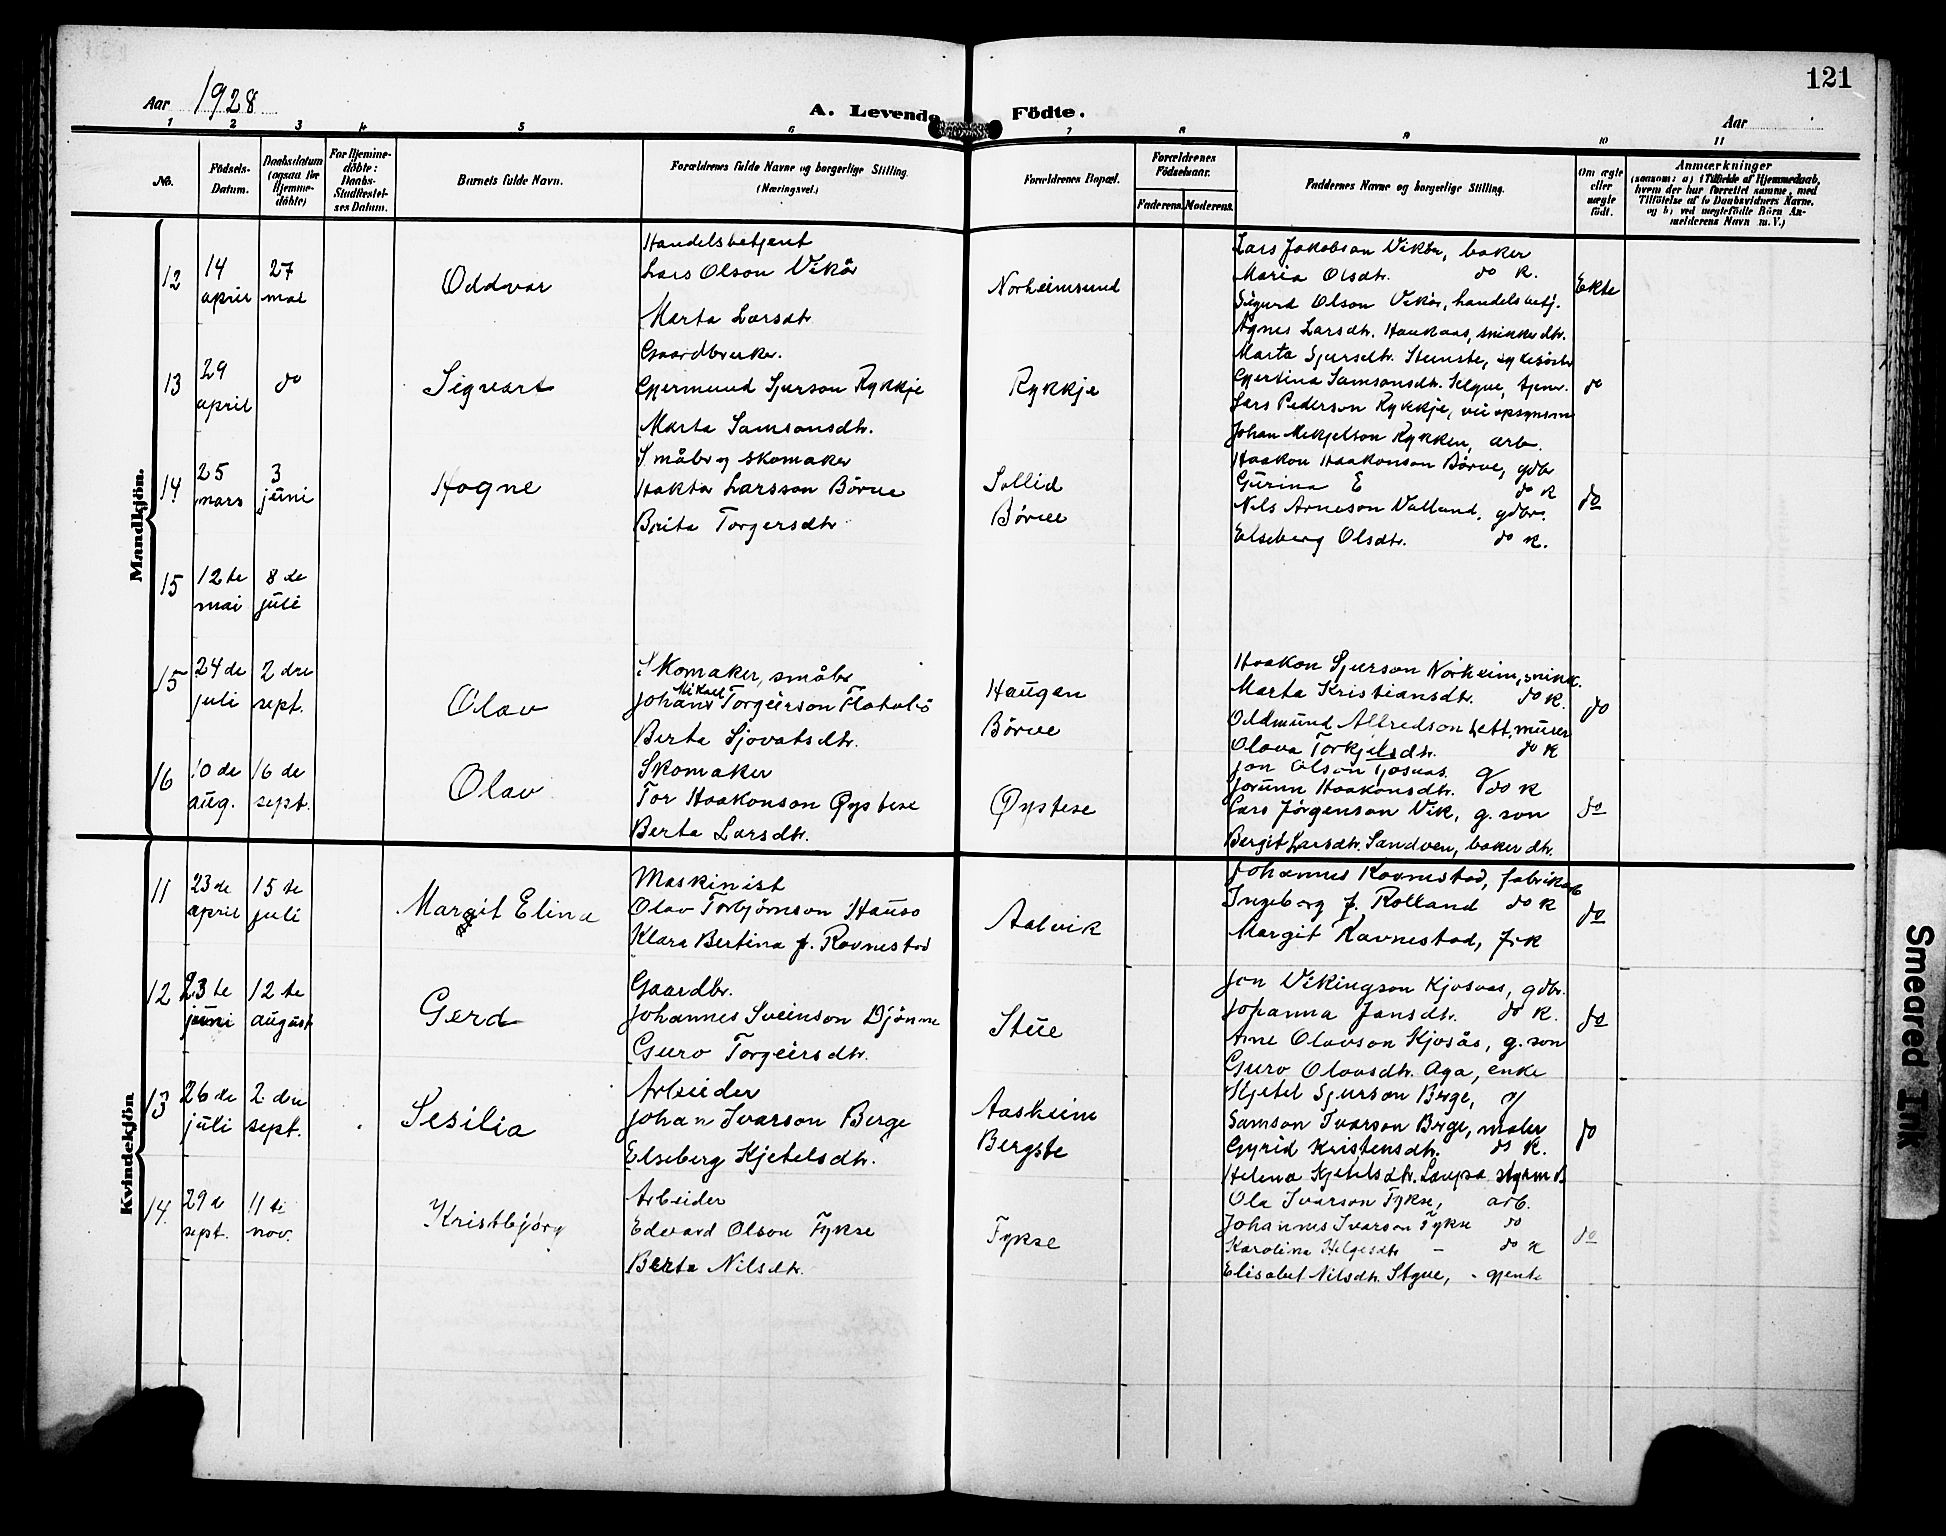 121
Aar 1928
A. Levende Födte.
Aar
1 2 3 4 5 6 7 8 9 10 11
No.
Födsels-Datum.
Daabsdatum (ogsaa for Hjemme-döbte)
For Hjemme-döbte: Daabs-Stadfæstel-ses Datum.
Barnets fulde Navn.
Forældrenes fulde Navne og borgerlige Stilling. (Næringsvei.)
Forældrenes Bopæl.
Forældrenes Födselsaar.
Faderens. Moderens.
Faddernes Navne og borgerlige Stilling.
Om ægte eller uægte födt.
Anmærkninger
(saasom: a) i Tilfælde af Hjemmedaab,
hvem der har forrettet samme, med
Tilföielse af to Daabsvidners Navne.
og b) ved uægtefödte Börn An-
melderens Navn m. V.)
Mandkjön.
12
14 april
27 mai
Oddvar
Handelsbetjent
Lars Olson Vikör
Marta Larsdtr.
Norheimsund
Lars Jakobson Vikör, baker
Maria Olsdtr. do k.
Sigurd Olson Vikör, handelsbetj.
Agnes Larsdtr. Haukaas, snikkerdtr.
Ekte
13
29 april
do
Sigvart
Gaardbruker.
Gjermund Sjurson Rykkje
Marta Samsonsdtr.
Rykkje
Marta Sjursdtr. Steinstø, sykesöster
Gjertina Samsonsdtr. Selsvik, tjener.
Lars Pederson Rykkje, vei opsynsm
Johan Mikjelson Rykken, arb.
do
14
25 mars
3 juni
Hogne
Småbr og skomaker
Haktor Larsson Börve
Brita Torgersdtr
Sollid
Börve
Haakon Haakonson Börve, gdbr
Gurina E do k
Nils Arneson Valland, gdbr.
Elseberg Olsdtr. do k.
do
15
12te mai
8de juli
15
24de juli
2dre sept.
Olav
Skomaker, småbr
Johans Mikael Torgeirson Flotve
Berta Sjovatsdtr.
Haugen
Börve
Haakon Sjurson Norheim, snikk.
Marta Kristiansdtr. do k.
Oddmund Alfredson Lett, murer
Olava Torkjelsdtr. do k
do
16
10de aug.
16de sept.
Olav
Skomaker
Tor Haakonson Öystese
Berta Larsdtr.
Öystese
Jon Olson Kjosvas. g
Jorunn Haakonsdtr. do k
Lars Jörgenson Vik, g. son
Bergit Larsdtr. Sandven, baker dtr.
do
Kvindekjön
11
23de april
15te juli
Margit Elina
Maskinist
Olav Torbjörnson Hauso
Klara Bertina f. Ravnestad
Aalvik
Johannes Ravnestad, fabrikarb
Ingeborg f. Rolland do k
Margit Ravnestad, frk
do
12
23te juni
12te august
Gerd
Gaardbr.
Johannes Sveinson Djönne
Guro Torgeirsdtr.
Steie
Jon Vikingson Kjosvas, gdbr.
Johanna Jonsdtr. do k.
Arne Olavson Kjosås, g. son
Guro Olavsdtr. Aga, enke
do
13
26de juli
2. dre sept.
Sesilia
Arbeider
Johan Ivarson Berge
Elseberg Kjetelsdtr.
Aaskeim
Bergstø
Kjetel Sjurson Berge, g
Samson Ivarson Berge, maler
Gyrid Kristensdtr. do k.
Helena Kjetelsdtr. Laupsa styrm d.
do
14.
29de sept.
11te nov.
Kristbjörg
Arbeider
Edvard Olson Fykse
Berta Nilsdtr.
Fykse
Ola Ivarson Fykse, arb.
Johannes Ivarson Fykse do
Karolina Helgesdtr - do k
Elisabet Nilsdtr. Steine, - gjente
do
Smeared Ink